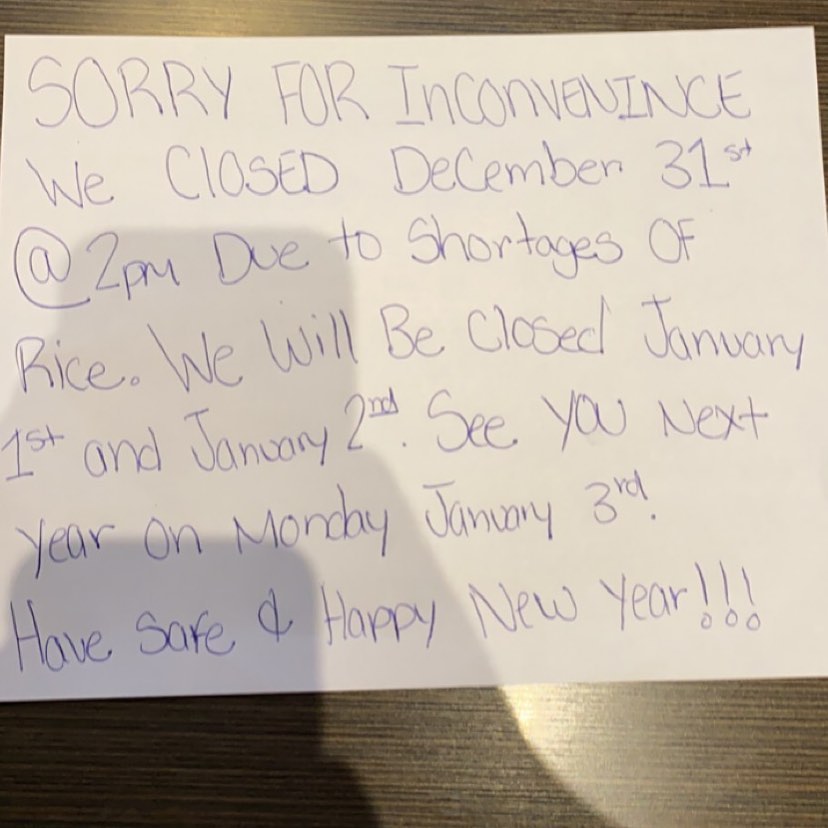 SORRY FOR InConVENINCE
We ClOSED DeCember 31st
@ 2pm Due to Shortages OF
Rice. We Will Be Closed January
1st and January 2nd. See you Next
year on Monday January 3rd.
Have Safe & Happy New year!!!